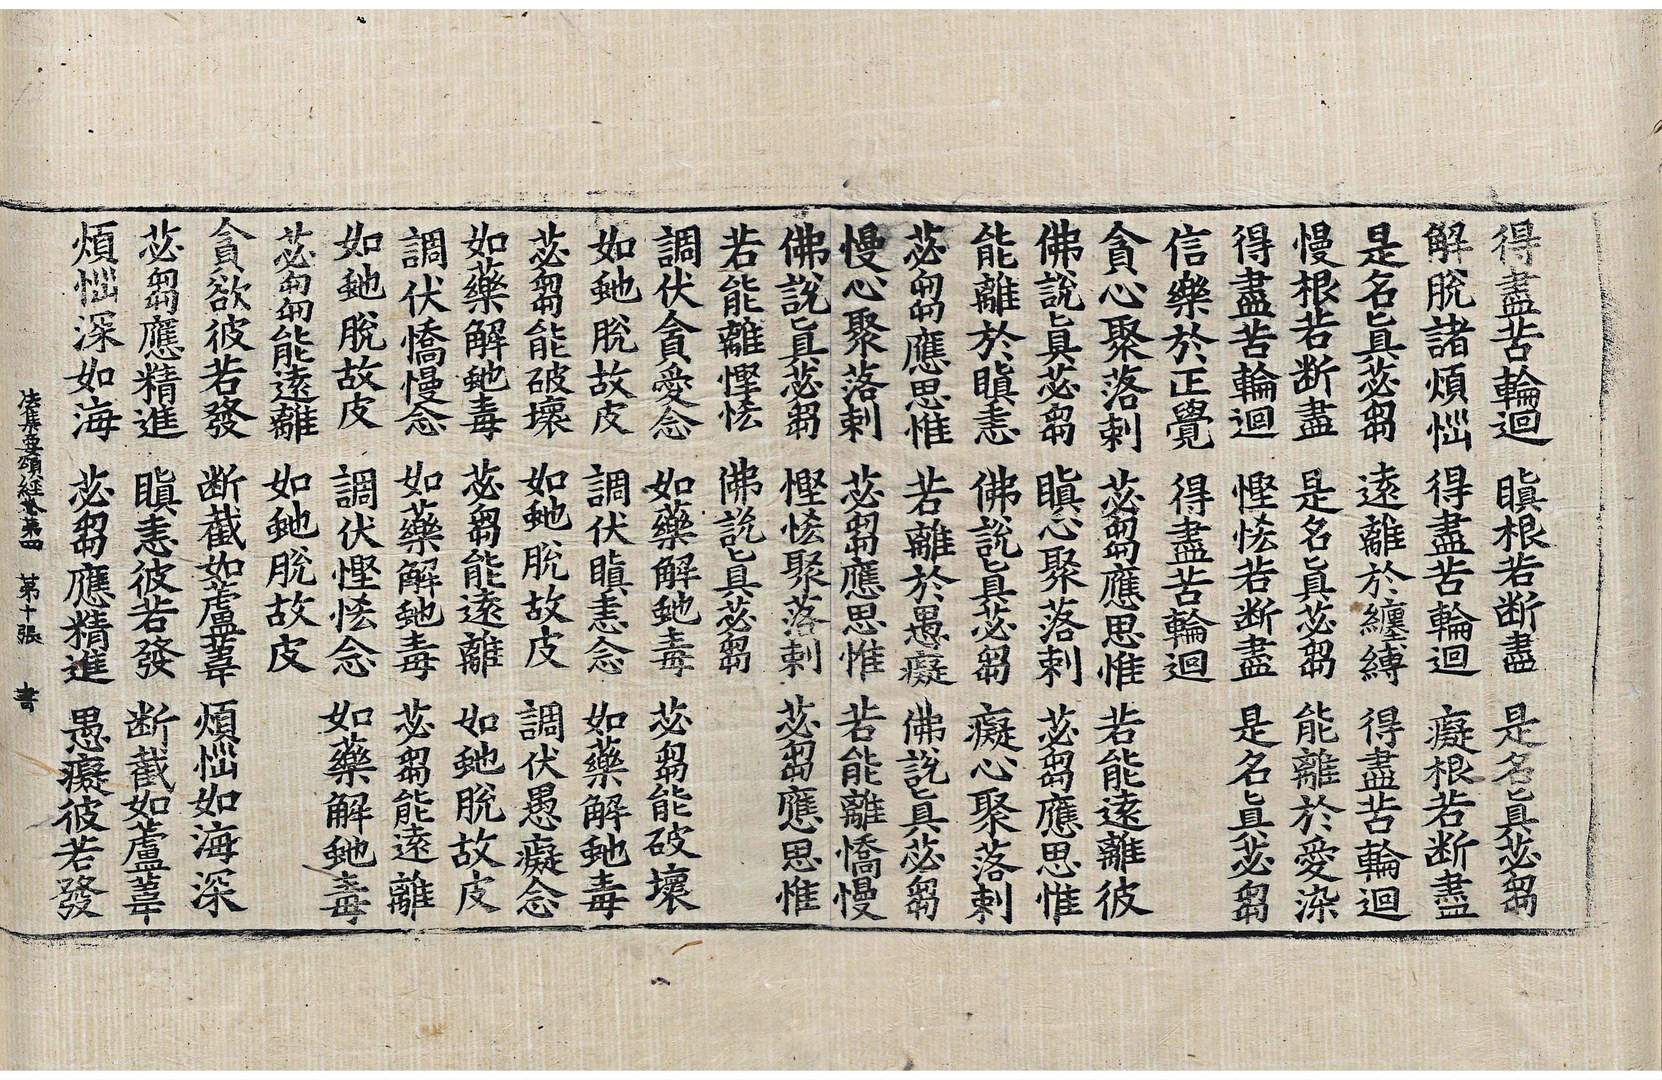 得盡苦輪迴 瞋根若断盡 是名真苾芻
解脫諸煩惱 得盡苦輪迴 癡根若断盡
是名真苾芻 遠離於纏縛 得盡苦輪迴
慢根若断盡 是名真苾芻 能離於愛染
得盡苦輪迴 慳悋若断盡 是名真苾芻
信樂於正覺 得盡苦輪迴
貪心聚落刺 苾芻應思惟 若能遠離彼
佛說真苾芻 瞋心聚落刺 苾芻應思惟
能離於瞋恚 佛說真苾芻 癡心聚落刺
苾芻應思惟 若離於愚癡 佛說真苾芻
慢心聚落刺 苾芻應思惟 若能離憍慢
佛說真苾芻 慳悋聚落刺 苾芻應思惟
若能離慳悋 佛說真苾芻
調伏貪愛念 如藥解虵毒 苾芻能破壞
如虵脫故皮 調伏瞋恚念 如藥解虵毒
苾芻能破壞 如虵脫故皮 調伏愚癡念
如藥解虵毒 苾芻能遠離 如虵脫故皮
調伏憍慢念 如藥解虵毒 苾芻能遠離
如虵脫故皮 調伏慳悋念 如藥解虵毒
苾芻能遠離 如虵脫故皮
貪欲彼若發 断截如蘆葦 煩惱如海深
苾芻應精進 瞋恚彼若發 断截如蘆葦
煩惱深如海 苾芻應精進 愚癡彼若發
法集要頌經卷第四 第十張 書